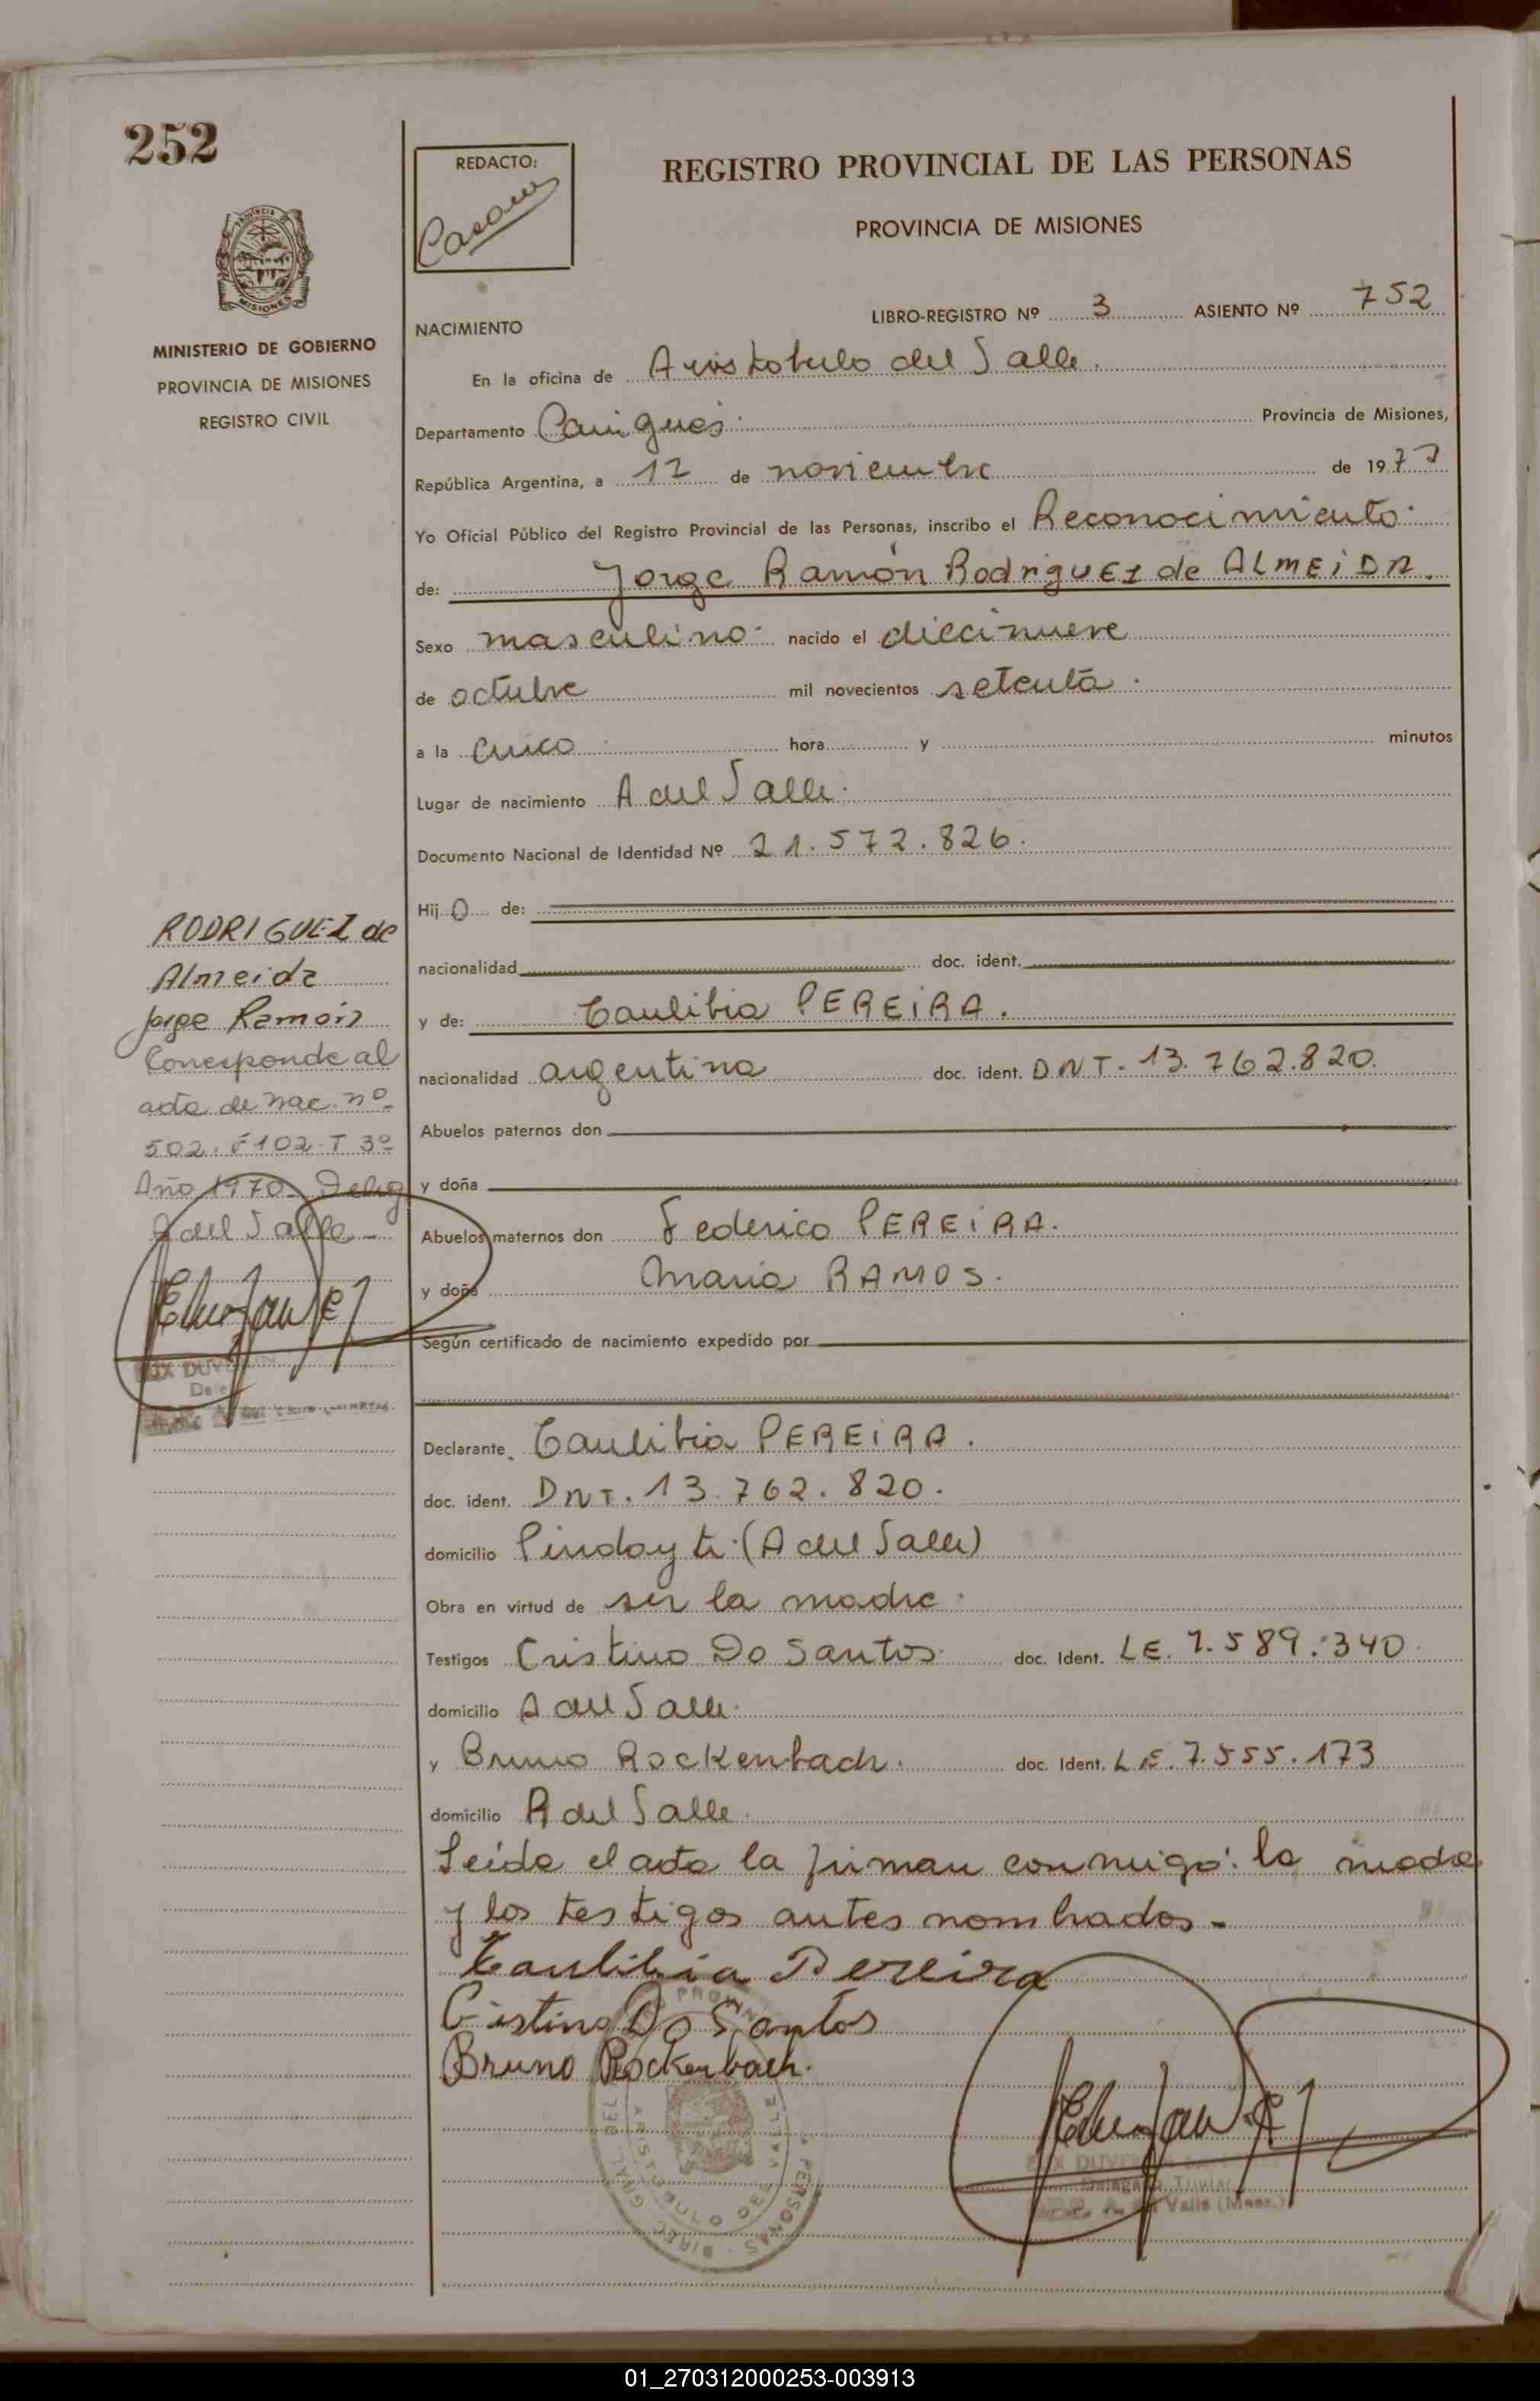 252
REDACTO:
REGISTRO PROVINCIAL DE LAS PERSONAS
PROVINCIA DE MISIONES
PROVINCIA DE MISIONES
MINISTERIO DE GOBIERNO
PROVINCIA DE MISIONES
REGISTRO CIVIL
NACIMIENTO
LIBRO-REGISTRO Nº 3 ASIENTO Nº 752
En la oficina de Aristobulo del Valle.
Departamento Cainguas Provincia de Misiones,
República Argentina, a 12 de noviembre de 1977
Yo Oficial Público del Registro Provincial de las Personas, inscribo el Reconocimiento
de: Jorge Ramón Rodriguez de ALMEiDA.
Sexo masculino nacido el diecinueve
de octubre mil novecientos setenta.
a la cinco hora y minutos
Lugar de nacimiento A del Valle.
Documento Nacional de Identidad Nº 21.572.826.
Hij O de:
nacionalidad doc. ident.
y de: PEREiRA.
nacionalidad argentina doc. ident. DNT. 13.762.820.
Abuelos paternos don
y doña
Abuelos maternos don Federico PEREiRA.
y doña Maria RAMOS.
Según certificado de nacimiento expedido por
RODRIGUEZ de
Almeida
Jorge Ramón
Corresponde al
acta de nac. nº
502. F 102 T 3º
Año 1970. Deleg
A del Valle.-
Declarante PEREiRA.
doc. ident. DNT. 13.762.820.
domicilio Pindayti (A del Valle)
Obra en virtud de ser la madre
Testigos Cristino Do Santos doc. Ident. LE. 7.589.340
domicilio A del Valle.
y Bruno Rockenbach. doc. Ident. LE. 7.555.173
domicilio A del Valle.
Leida el acta la firman conmigo: la madre
y los testigos antes nombrados.-
Pereira
Cistino Do Santos
Bruno Rockenbach.
01_270312000253-003913